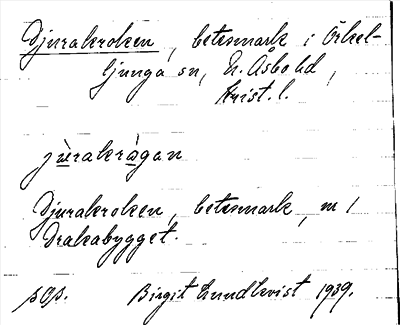 Djurakroken, betesmark i Örkel-
ljunga sn, N. Åsbo hd,
Krist. l.
jùrakrågan
Djurakroken, betesmark, m 1
Drakabygget.
Birgit Lundkvist 1939.